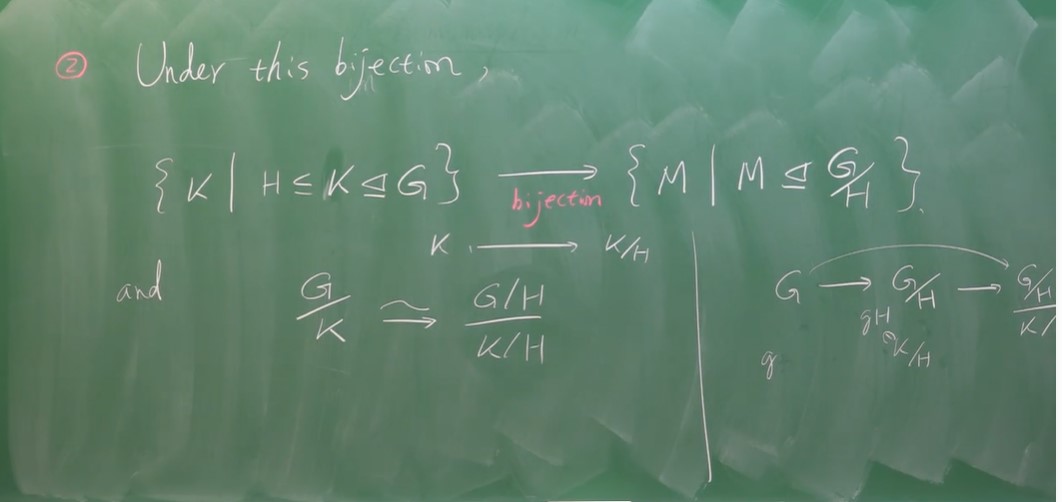 ② Under this bijection,
{ K | H ≤ K ⊴ G } ⟶ { M | M ⊴ G/H }.
bijection
K ⟶ K/H
and G/K ⥲ (G/H)/(K/H)
G ⟶ G/H ⟶ G/H / K/
gH
K/H
g